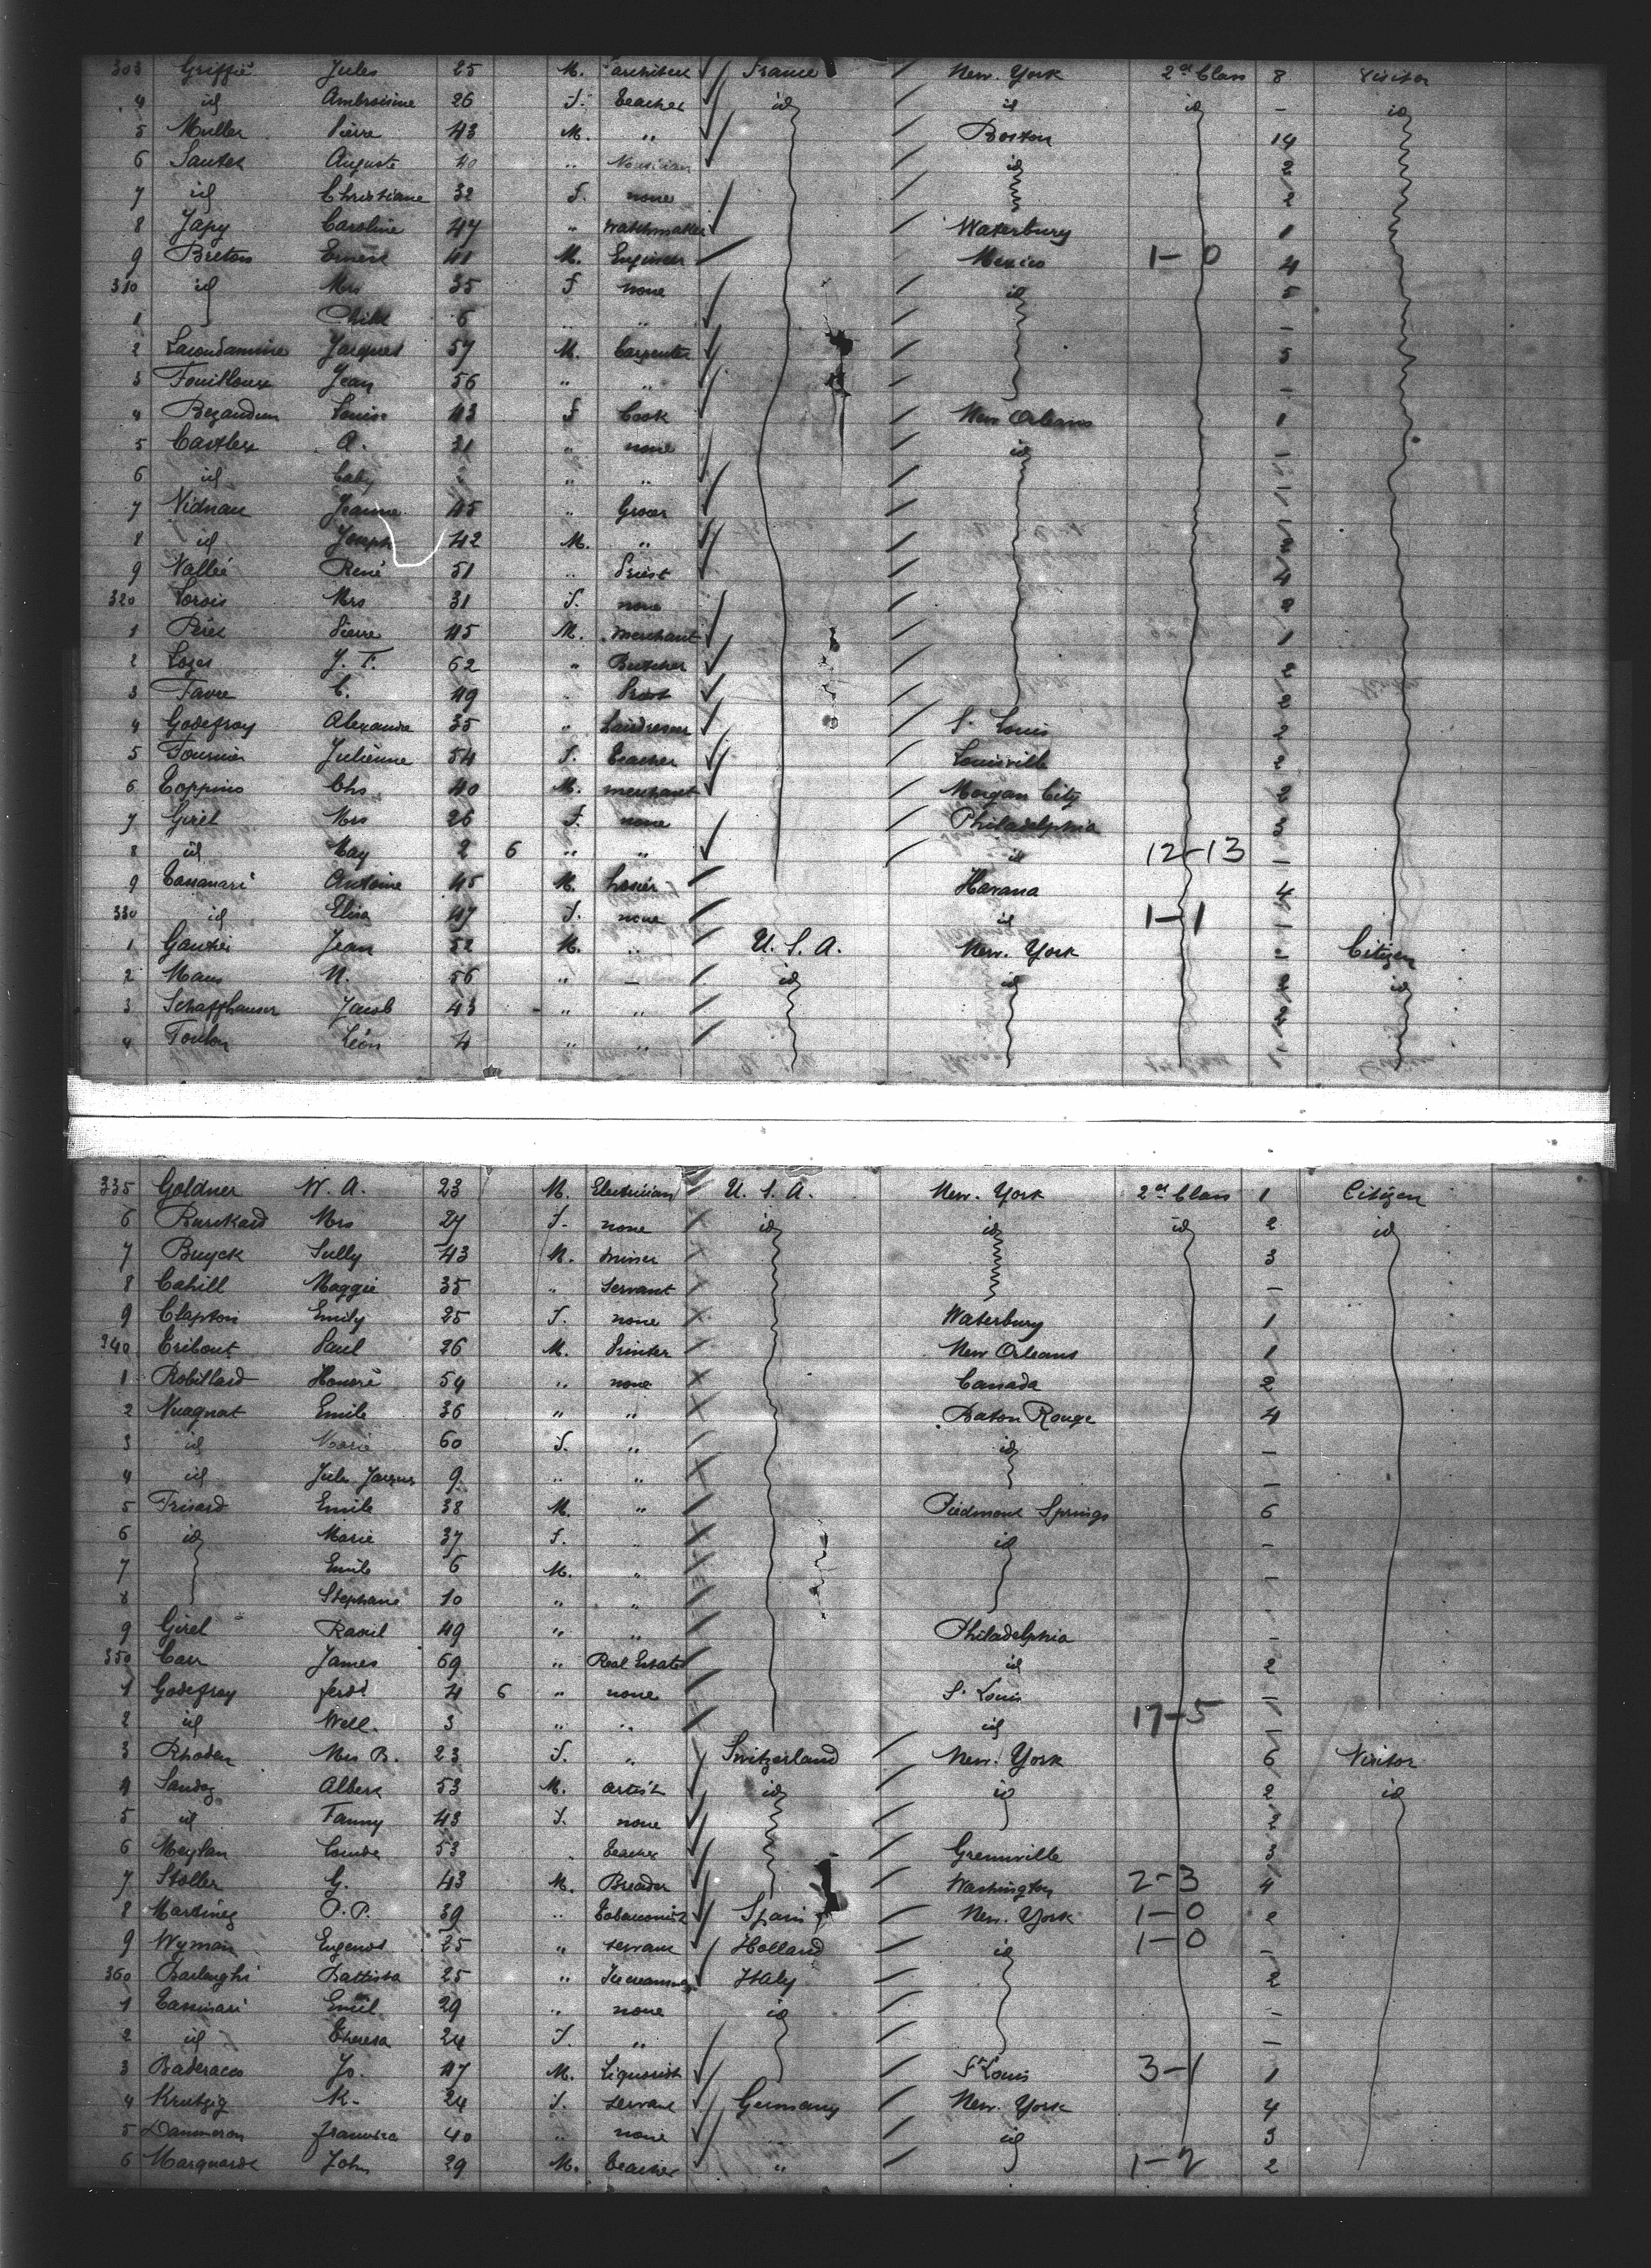 303 Griffié Jules 25 M. architect France New. York 2d Class 8 Visitor
4 id Ambroisine 26 f. teacher id id id - id
5 Muller Pierre 43 M. " Boston 14
6 Sauter Auguste 40 " Musician id 2
7 id Christiane 32 f. none 2
8 Japy Caroline 47 " Watchmaker Waterbury 1
9 Breton Ernest 41 M. Engineer Mexico 1-0 4
310 id Mrs 35 f none id 5
1 Child 6 " " -
2 Jacques 57 M. Carpenter 5
3 Fouilloux Jean 56 " " -
4 Louise 43 f Cook New Orleans 1
5 A. 31 " none id 1
6 id baby " " 1
7 Vidnau Jeanne 45 " Grocer 1
8 id Joseph 42 M. "
9 Vallée René 51 " Priest 4
320 Mrs 31 f. none 2
1 Pierre 45 M. merchant 1
2 J. F. 62 " Butcher 2
3 Favre C. 49 " 2
4 Godefroy 35 " S. Louis 2
5 Fournier Julienne 54 f. teacher Louisville 2
6 Toppino Chs 40 M. merchant Morgan City 2
7 Girel Mrs 26 f. none Philadelphia
8 id May 2 6 " " id 12-13 -
9 Antoine 45 M. Havana 4
330 id Elisa 47 f. none id 1-1 1
1 Jean 52 M. " U. S. A. New. York - Citizen
2 Maus N. 56 " - id id 2 id
3 Schaffhauser Jacob 43 " " 2
4 Toulon Léon 4 " " 1
335 Goldner W. A. 23 M. Electrician U. S. A. New. York 2d Class 1 Citizen
6 Burckard Mrs 27 f. none id id id 2 id
7 Buyck Sully 43 M. miner 3
8 Cahill Maggie 35 " servant -
9 Clapton Emily 25 f. none Waterbury 1
340 Tribout Paul 26 M. Printer New Orleans 1
1 Robillard Honoré 54 " none Canada 2
2 Vuagnat Emile 36 " " Baton Rouge 4
3 id Marie 60 f. " id -
4 id Jules 9 " " -
5 Frisard Emile 38 M. " Piedmont Springs 6
6 id Marie 37 f. " id -
7 Emile 6 M. " -
8 Stephané 10 " "
9 Girel Raoul 49 " " Philadelphia -
350 Carr James 69 " Real Estate id 2
1 Godefroy ferdd 4 6 " none S. Louis -
2 id Well. 3 " " id 17-5 -
3 Rhoden Mrs B. 23 f. " Switzerland New. York 6 Visitor
4 Sandoz Albert 53 M. artist id id 2 id
5 id Fanny 43 f. none 2
6 Meylan Louise 53 " teacher Greenville 3
7 Stoller G. 43 M. Breader Washington 2-3 4
8 Martinez P. P. 39 " Tobacconist Spain New. York 1-0 2
9 Wyman Eugenol 25 " servant Holland id 1-0 -
360 Battista 25 " Italy 2
1 Tassinari Emil 29 " none id -
2 id Theresa 24 f. " -
3 Baderacco Jo. 47 M. Liquorist St Louis 3-1 1
4 Krutzig K. 24 f. servant Germany New. York 4
5 Dammeron francisca 40 " none id 3
6 Marquardt John 29 M. teacher " 1-2 2